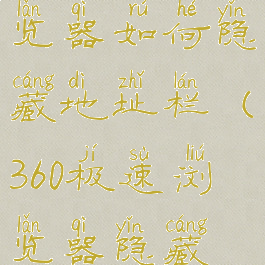 lǎn qì rú hé yǐn
览器如何隐
cáng dì zhǐ lán
藏地址栏（
jí sù liú
360极速浏
lǎn qì yǐn cáng
览器隐藏